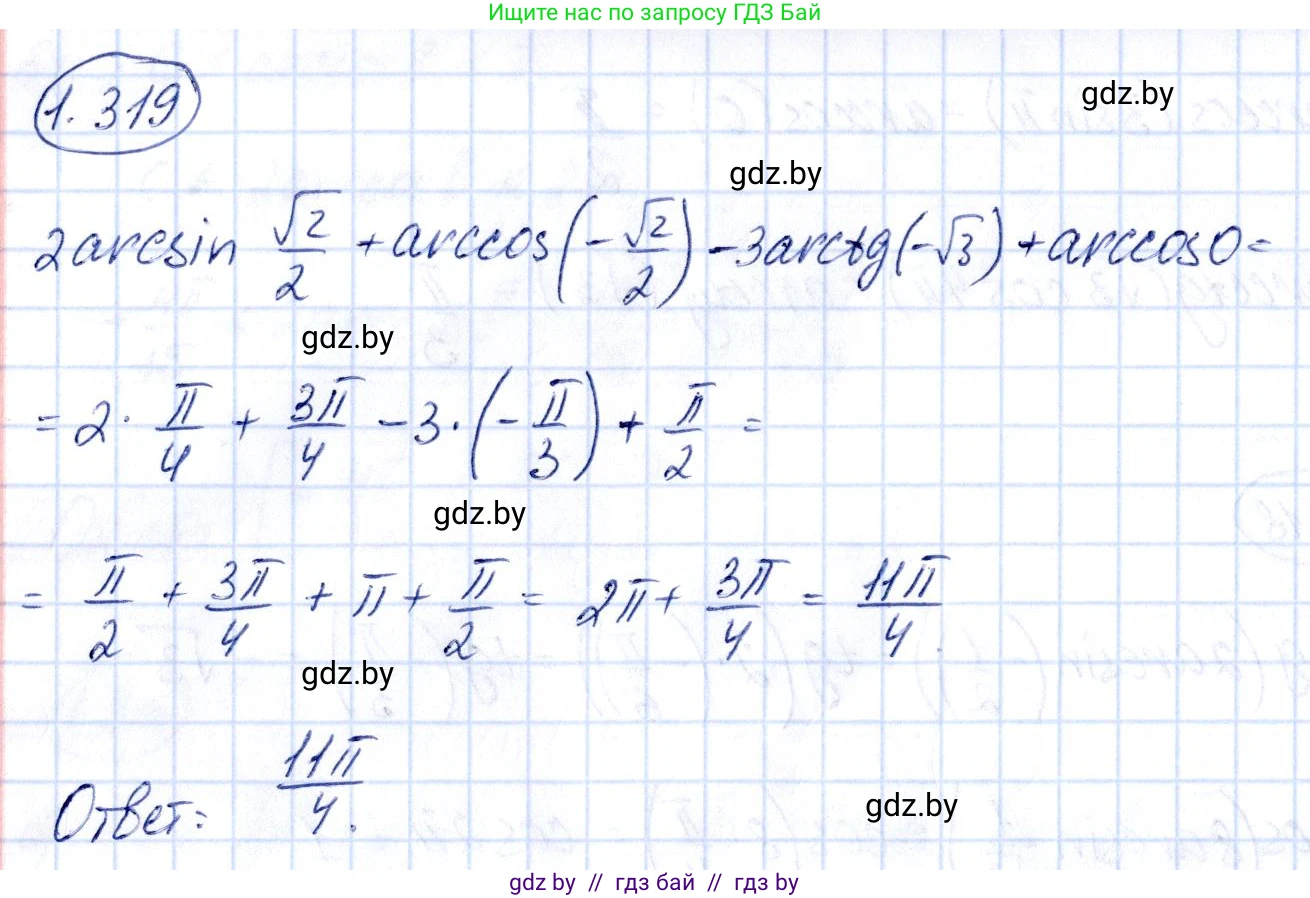 Ищите нас по запросу ГДЗ Бай
1.319
gdz.by
gdz.by
2arcsin √2/2 + arccos(-√2/2) - 3arctg(-√3) + arccos0 =
gdz.by
= 2 · π/4 + 3π/4 - 3 · (-π/3) + π/2 =
gdz.by
= π/2 + 3π/4 + π + π/2 = 2π + 3π/4 = 11π/4.
gdz.by
Ответ: 11π/4.
gdz.by
gdz by // гдз бай // гдз by